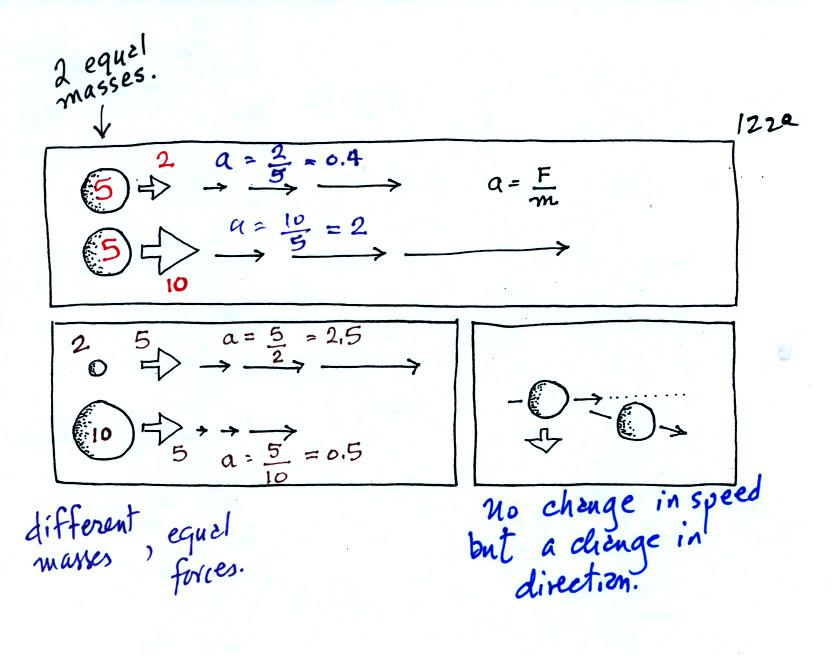 2 equal
masses.
122a
5 2 a = 2/5 = 0.4 a = F/m
5 10 a = 10/5 = 2
2 5 a = 5/2 = 2.5
10 5 a = 5/10 = 0.5
different
masses , equal
forces.
No change in speed
but a change in
direction.